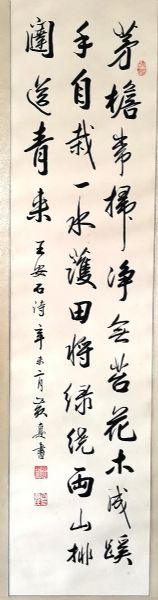 茅檐常掃净無苔花木成蹊
手自栽一水護田將绿绕兩山排
闥送青来 王安石诗辛未月書